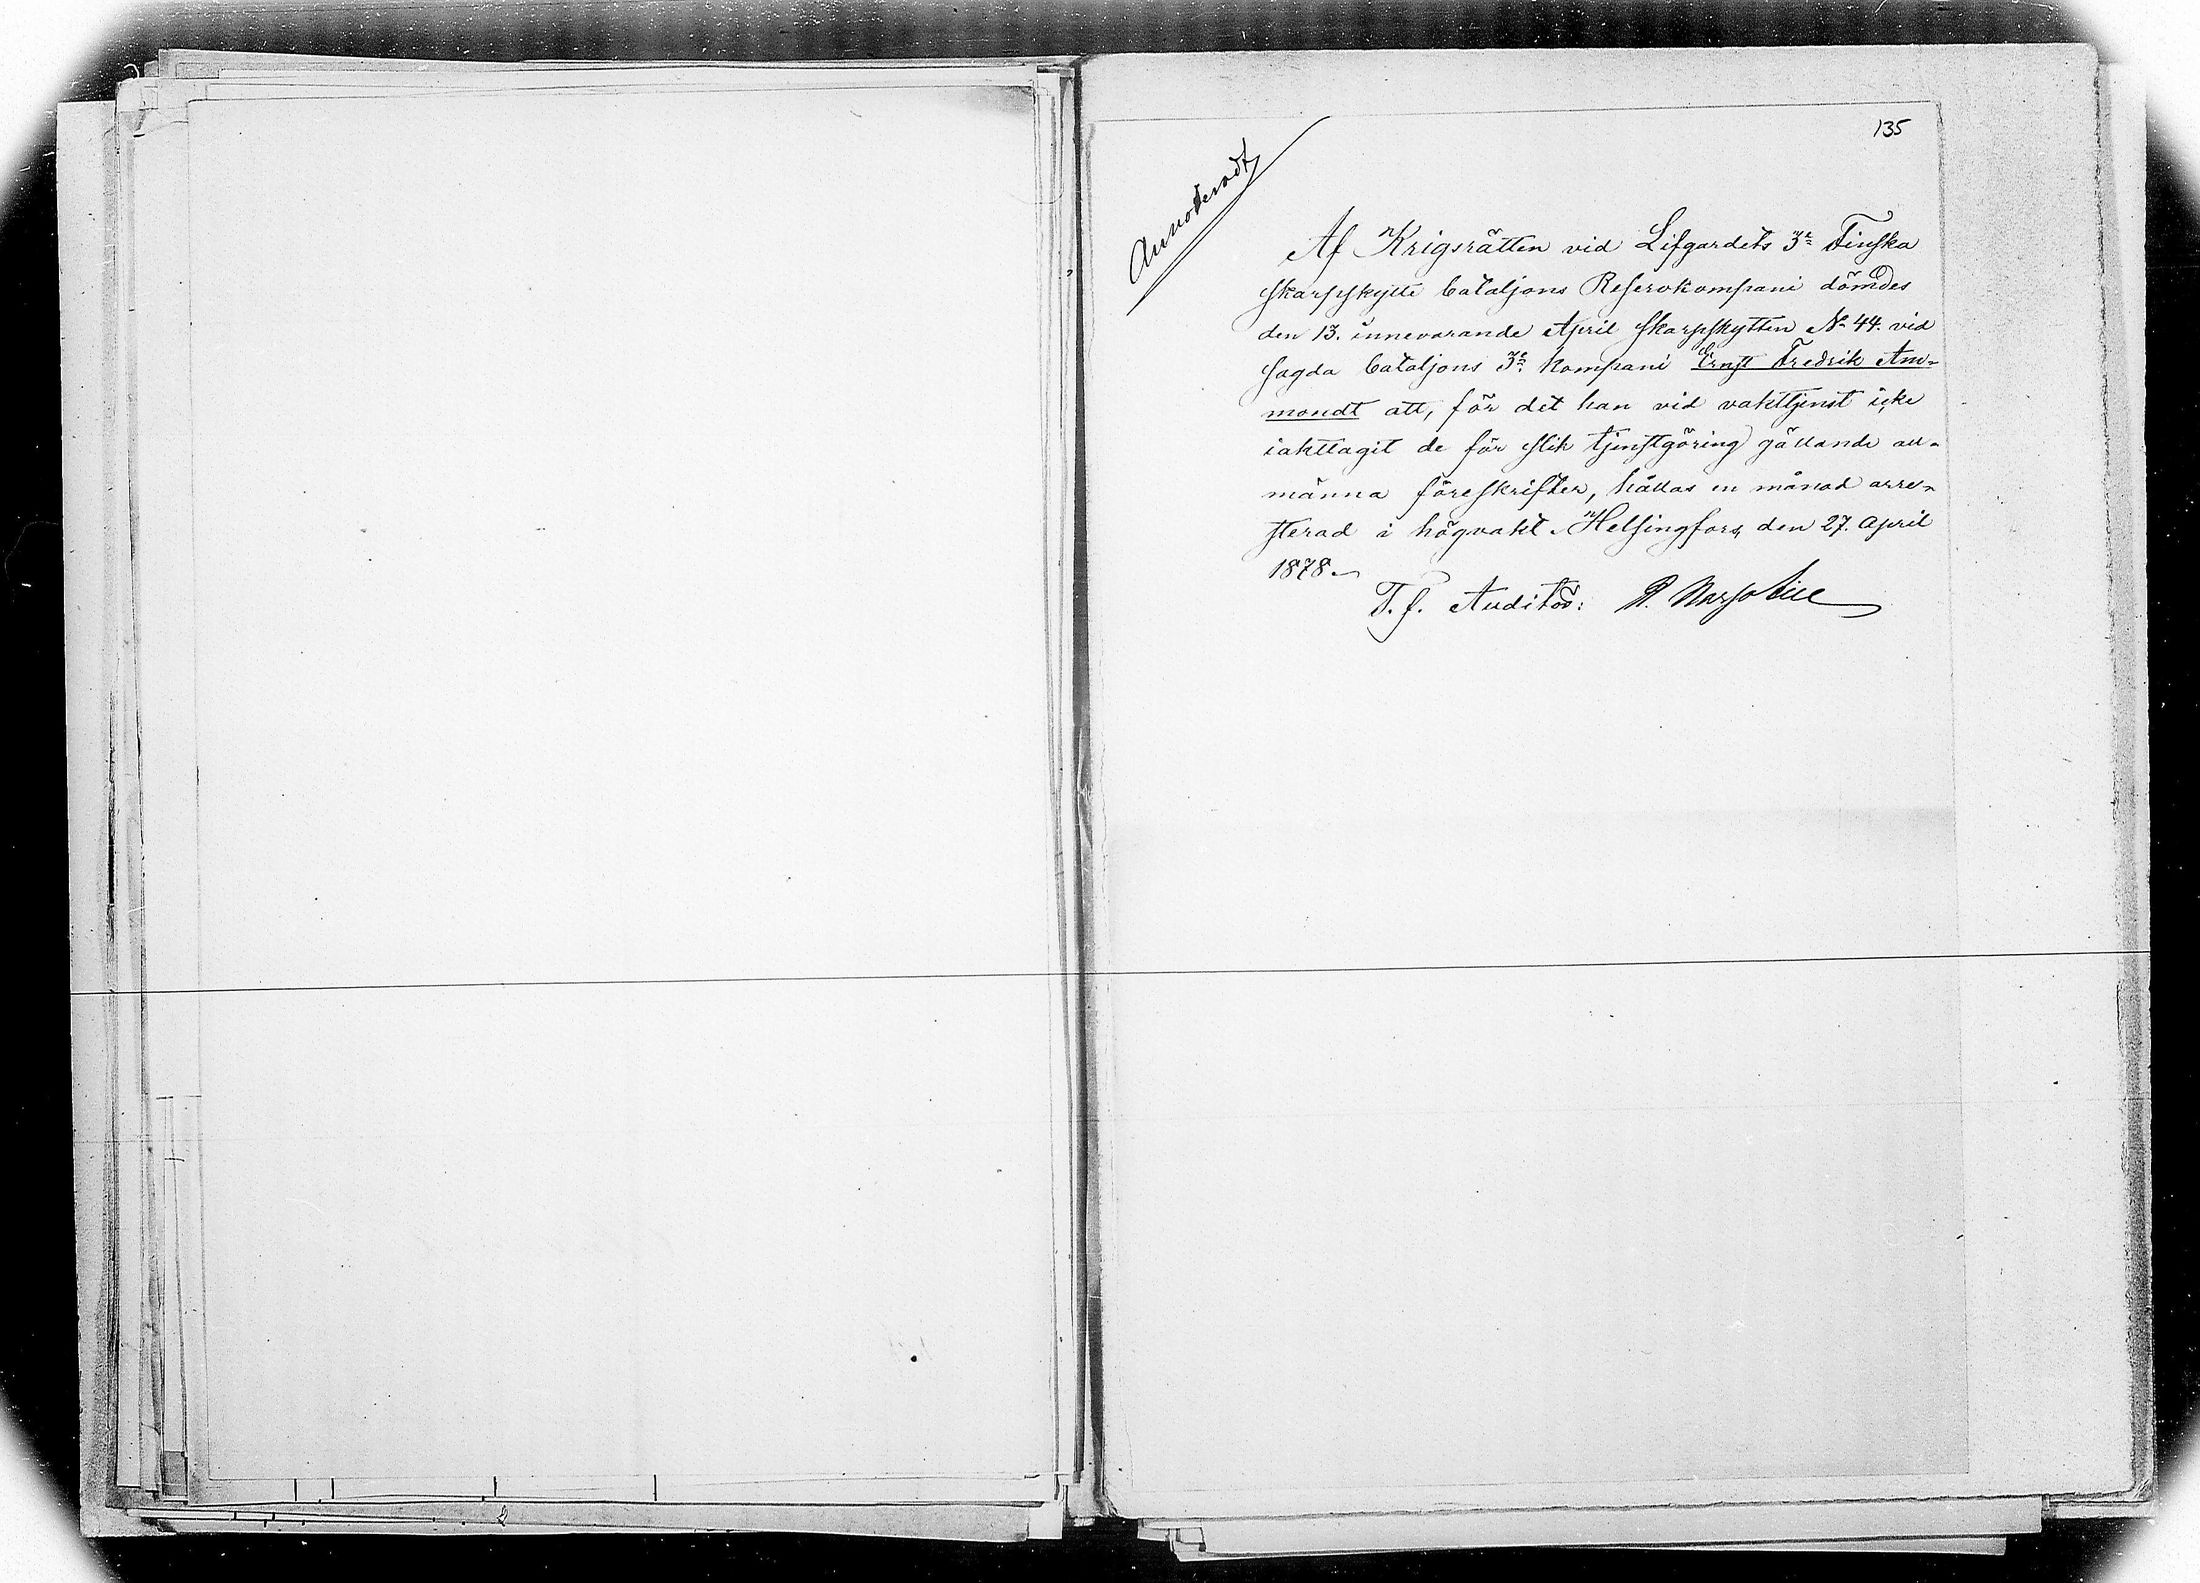 135
Annoteradt
Af Krigsrätten vid Lifgardets 3e Finska
skarpskytte bataljons Reservkompani dömdes
den 13. innevarande April skarpskytten No 44. vid
sagda bataljons 3e kompani Ernst Fredrik Am-
mondt att, för det han vid vakttjenst icke
iakttagit de för slik tjenstgöring gällande all-
männa föreskrifter, hållas en månad arre-
sterad i högvakt. Helsingfors, den 27. April
1878.
T. f. Auditör: